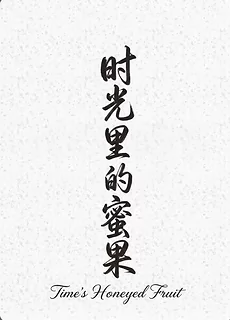 时光里的蜜果
Time's Honeyed Fruit